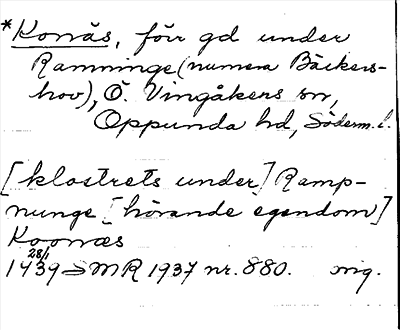 *Konäs, förr gd under
Ramninge (numera Bäckers-
hov), Ö. Vingåkers sn,
Oppunda hd, Söderm. l.
[klostrets under] Ramp-
nunge [hörande egendom]
Koonæs
28/1
1439 SMR 1937 nr. 880. orig.